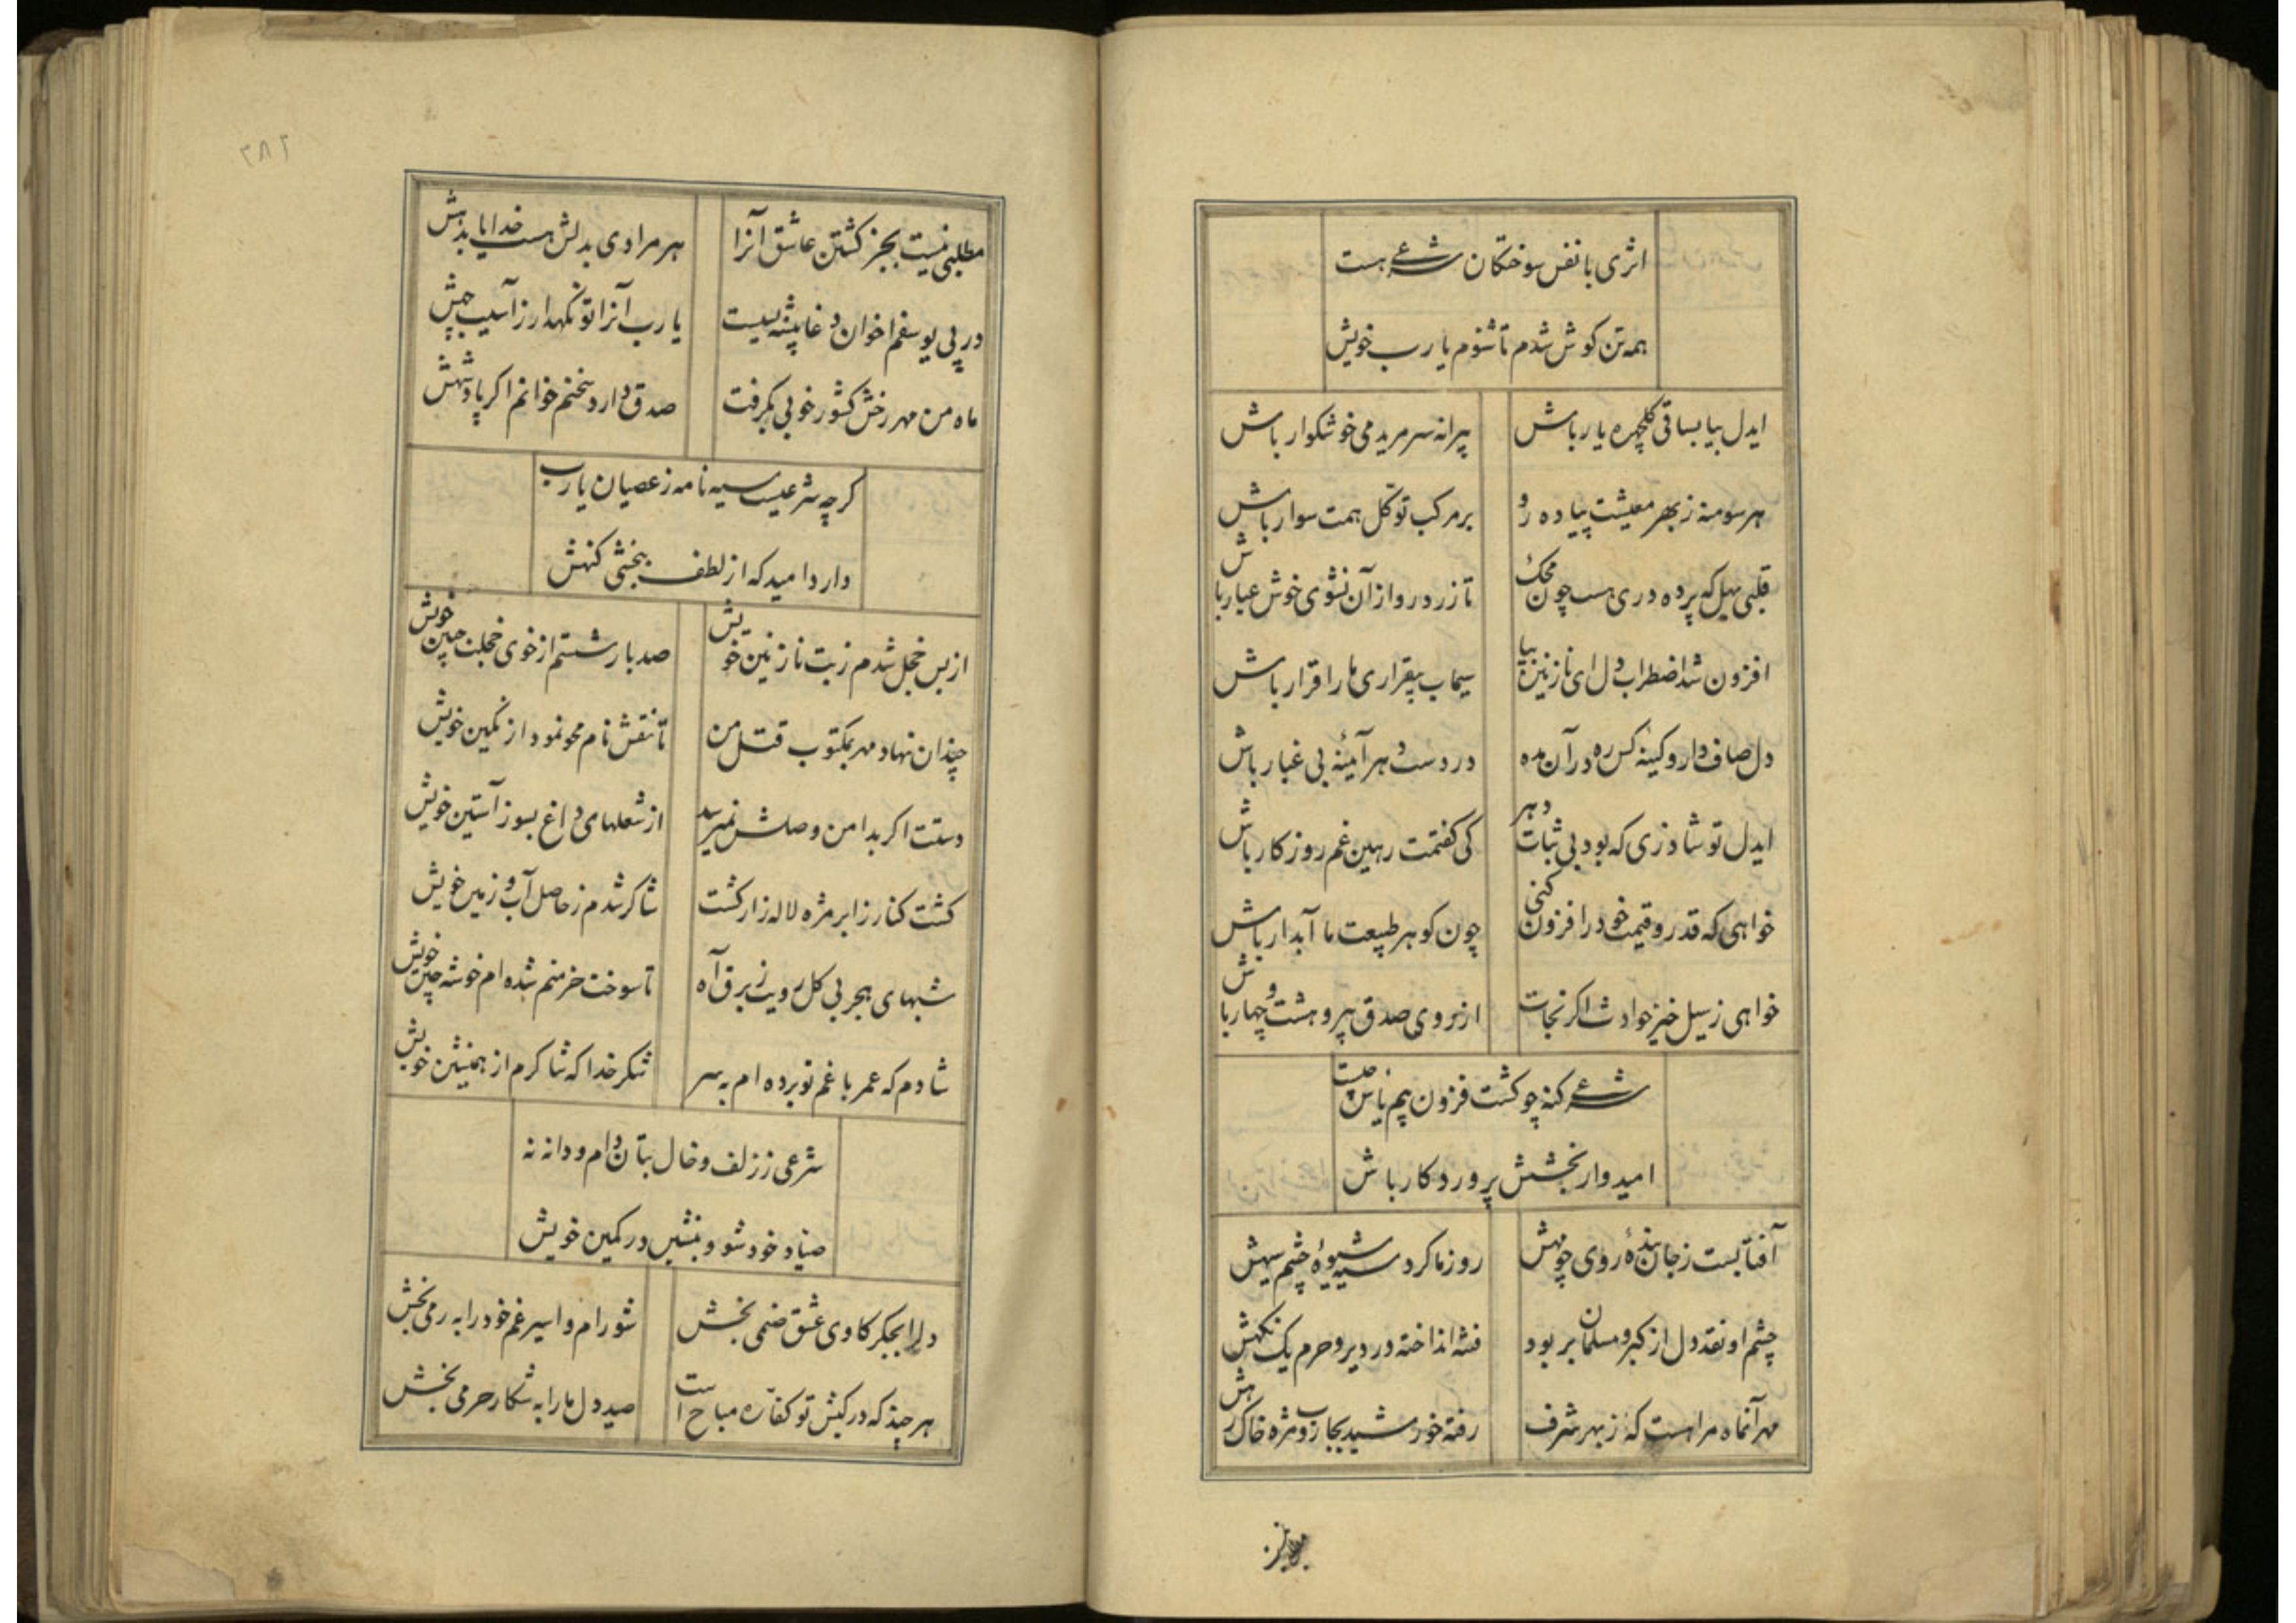 اثری با نفس سوختکان شرعی هست
همه تن کوش شدم تا شنوم یا رب خویش
ایدل بیا بساقی کلچهره یار باش
پیرانه سر مرید می خوشکوار باش
هر سو منه ز بهر معیشت پیاده رو
بر مرکب توکل همت سوار باش
قلبی مهل که پرده دری هست چون محک
تا زرد رو از آن نشوی خوش عیار باش
افزون شد اضطراب دل ای نازنین بیا
سیماب بیقراری ما را قرار باش
دل صاف دار و کینه کس ره در آن مده
در دست هر آینه بی غبار باش
ایدل تو شاد زی که بود بی ثبات دهر
کی کفتمت رهین غم روزکار باش
خواهی که قدر و قیمت خود را فزون کنی
چون کوهر طبیعت ما آبدار باش
خواهی ز سیل خیز حوادث اکر نجات
از روی صدق پیرو هشت و چهار باش
شرعی کنه چو کشت فزون بیم یاس چیست
امیدوار بخشش پروردکار باش
آفتابست ز جان بندهٔ روی چو مهش
روز ما کرد سیه شیوهٔ چشم سیهش
چشم او نقد دل از کبر و مسلمان بربود
فتنه انداخته در دیر و حرم یک نکهش
مهر آنماه مرا هست که ز بهر شرف
رفته خورشید بجاروب مژه خاک رهش
۲۸۲
مطلبی نیست بجز کشتن عاشق آنرا
هر مرادی بدلش هست خدایا بدهش
در پی یوسفم اخوان دغا پیشه بسیست
یا رب آنرا تو نکهدار ز آسیب چهش
ماه من مهر رخش کشور خوبی بکرفت
صدق دارد سخنم خوانم اکر پادشهش
کرچه شرعیست سیه نامه ز عصیان یا رب
دارد امید که از لطف ببخشی کنهش
از بس خجل شدم ز بت نازنین خویش
صد بار شستم از خوی خجلت جبین خویش
چندان نهاد مهر بمکتوب قتل من
تا نقش نام محو نمود از نکین خویش
دستت اکر بدامن وصلش نمیرسد
از شعلهای داغ بسوز آستین خویش
کشت کنار ز ابر مژه لاله زار کشت
شاکر شدم ز حاصل آب و زمین خویش
شبهای هجر بی کل رویت ز برق آه
تا سوخت خرمنم شده ام خوشه چین خویش
شادم که عمر با غم تو برده ام به سر
شکر خدا که شاکرم از همنشین خویش
شرعی ز زلف و خال بتان دام و دانه نه
صیاد خود شو و بنشین در کمین خویش
دلرا بجکر کاوی عشق صنمی بخش
شو رام و اسیر غم خود را به رمی بخش
هر چند که در کیش تو کفاره مباح است
صید دل ما را به شکار حرمی بخش